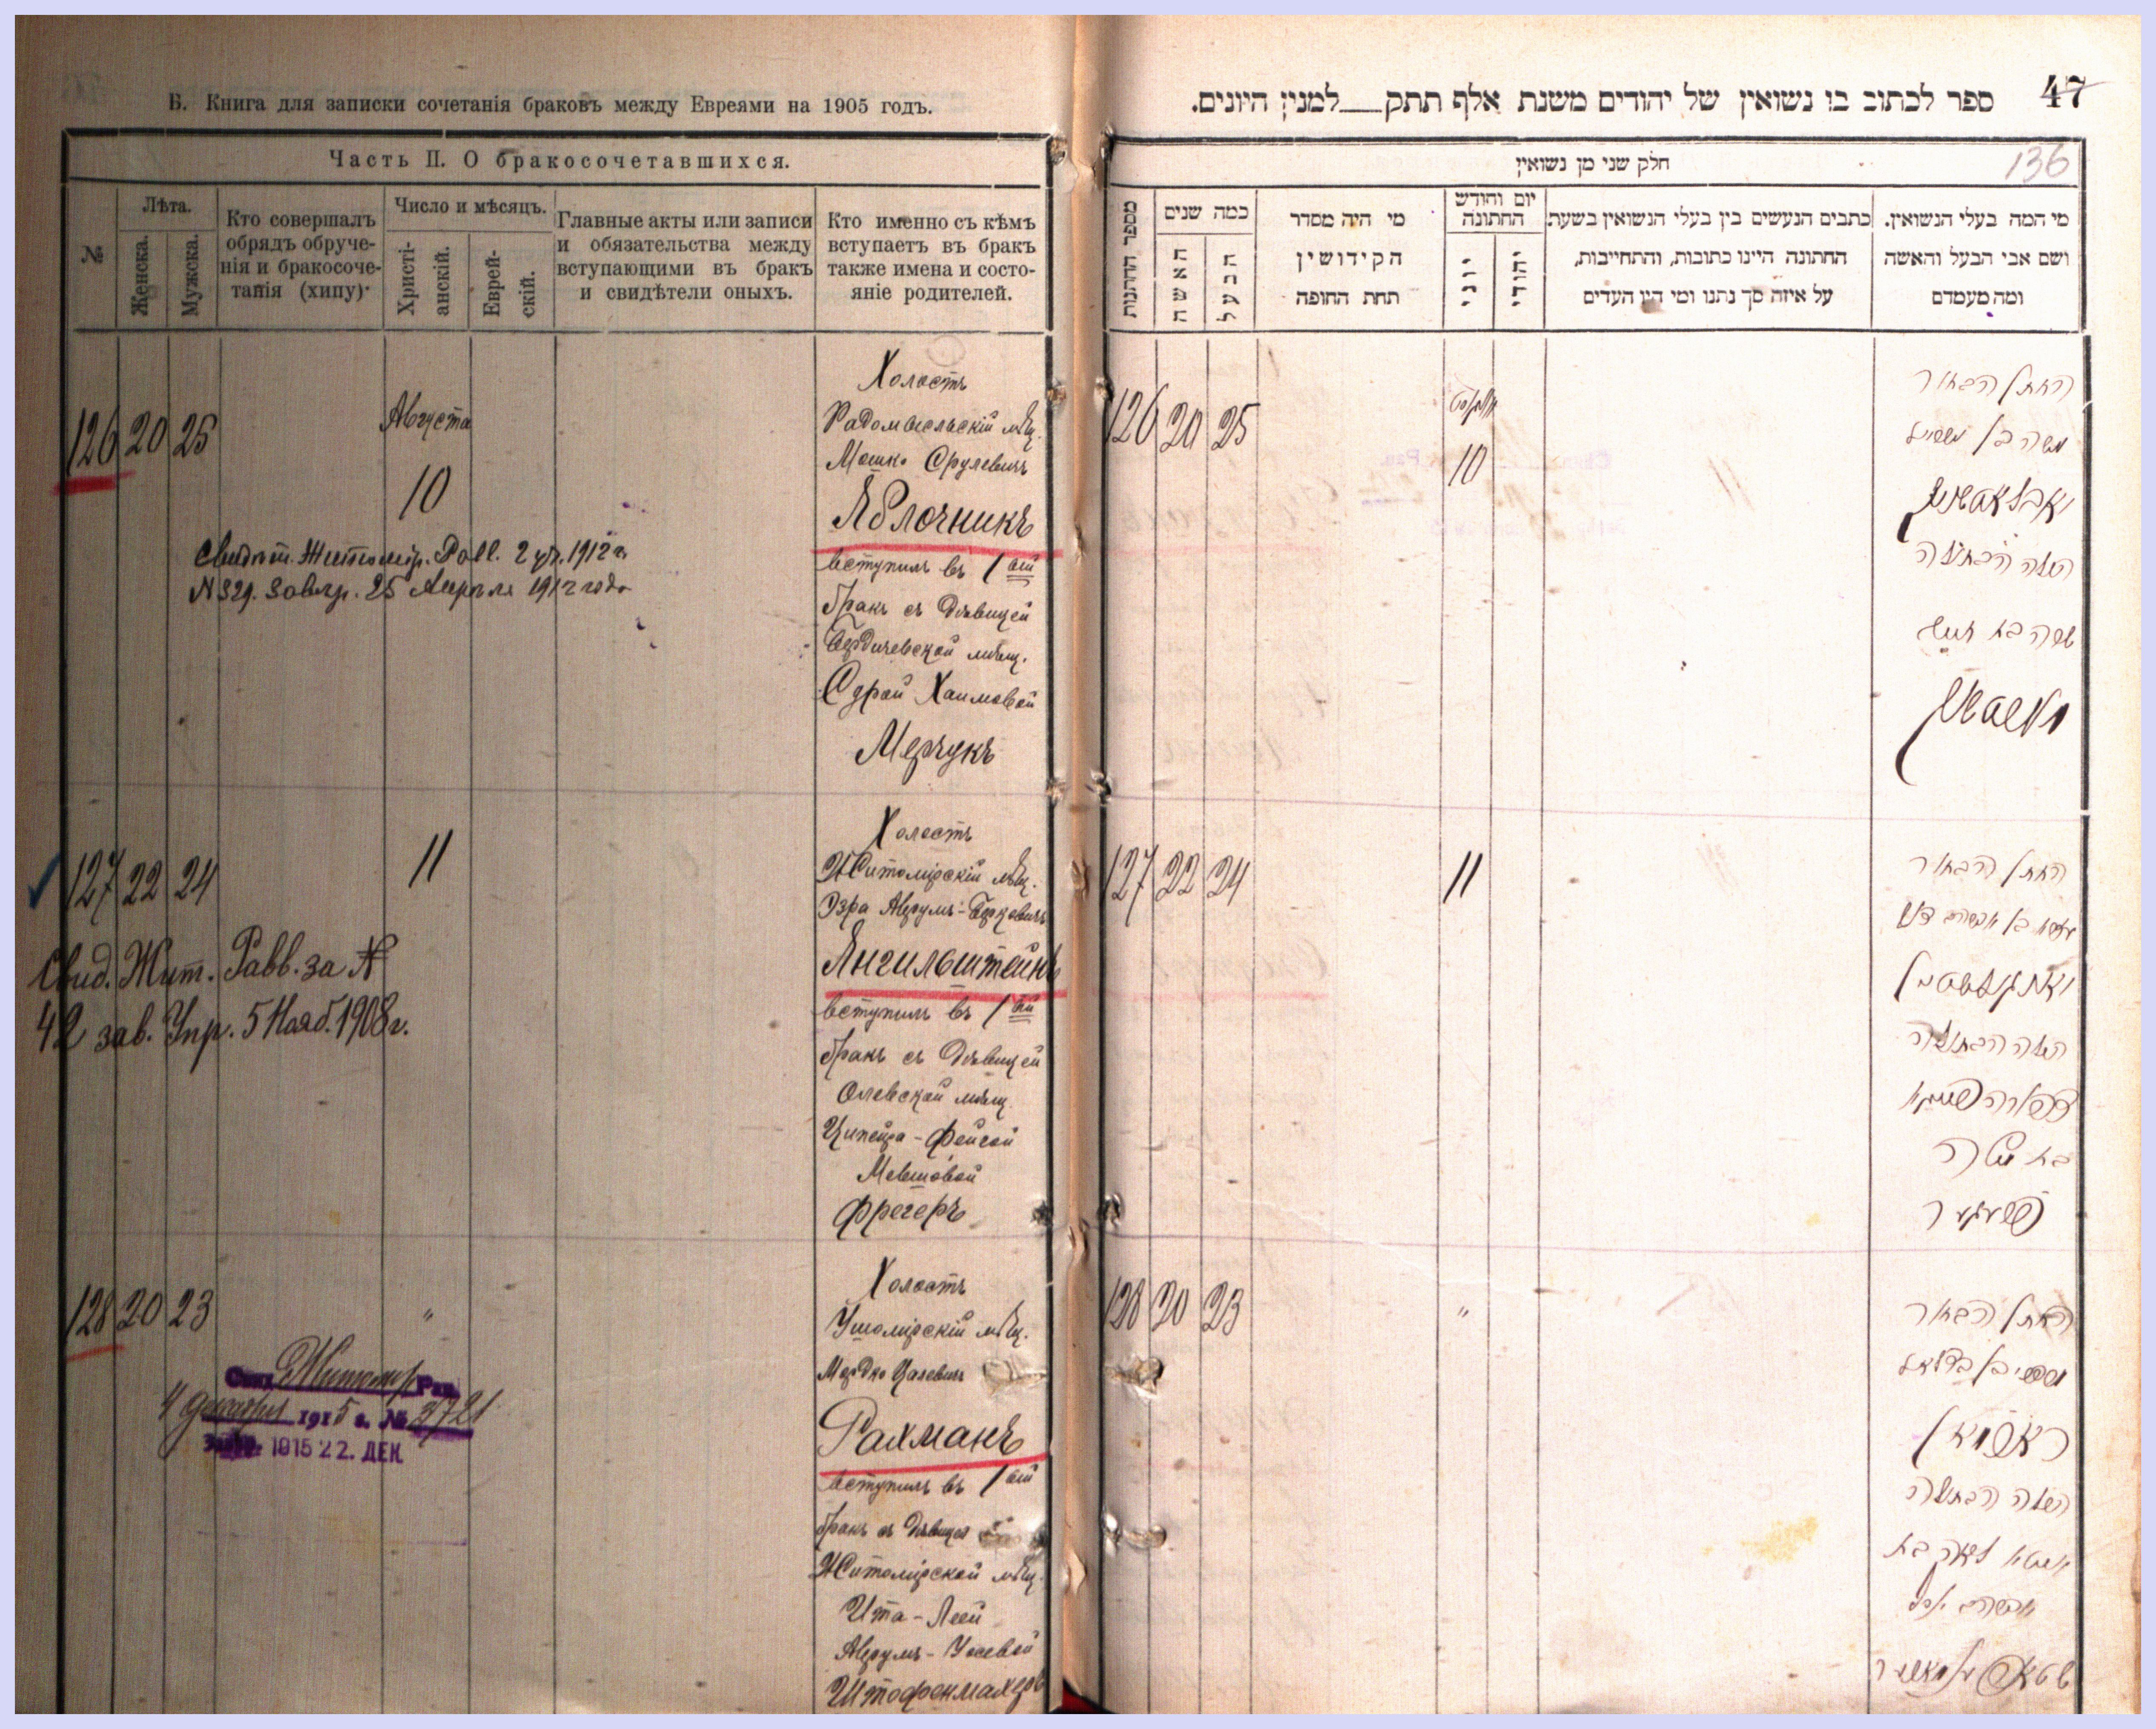 Б. Книга для записки сочетанія браковъ между Евреями на 1905 годъ.
Часть II. О бракосочетавшихся.
№
Лѣта.
Женска.
Мужска.
Кто совершалъ
обрядъ обруче-
нія и бракосоче-
танія (хипу)
Число и мѣсяцъ.
Христі-
анскій.
Еврей-
скій.
Главные акты или записи
и обязательства между
вступающими въ бракъ
и свидѣтели оныхъ.
Кто именно съ кѣмъ
вступаетъ въ бракъ
также имена и состо-
яніе родителей.
126 20 25
Августа
10
Свидѣт. Житомір. Равв. 2 1912 г.
N 329. Завѣр. 25 Апрѣля 1912 года
Холостъ
Радомысльскій мѣщ.
Мошко Срулевичъ
Яблочникъ
вступилъ въ 1ый
бракъ съ дѣвицей
Бердичевской мѣщ.
Сурой Хаимовой
Мерчукъ
127 22 24
11
Свид. Жит. Равв. за №
42 зав. Упр. 5 Нояб. 1908 г.
Холостъ
Житомірскій мѣщ.
Эзра Аврумъ-Берковичъ
Янгильштейнъ
вступилъ въ 1ый
бракъ съ дѣвицей
Олевской мѣщ.
Ципейра-Фейгой
Мовшовой
Фрегеръ
128 20 23
"
Свид. Житомир. Рав.
4 декабря 1915 г. № 3721
1915 22. ДЕК.
Холостъ
Ушомірскій мѣщ.
Мордко Цалевичъ
Рахманъ
вступилъ въ 1ый
бракъ съ дѣвицей
Житомірской мѣщ.
Ита-Леей
Аврумъ-Уосевой
Штофенмахеръ
47
ספר לכתוב בו נשואין של יהודים משנת אלף תתק__למנין היונים.
136
חלק שני מן נשואין
מספר החתונות
כמה שנים
האשה
הבעל
מי היה מסדר
הקידושין
תחת החופה
יום וחודש
החתונה
יוני
יהודי
כתבים הנעשים בין בעלי הנשואין בשעת
החתונה היינו כתובות, והתחייבות,
על איזה סך נתנו ומי היו העדים
מי המה בעלי הנשואין.
ושם אבי הבעל והאשה
ומה מעמדם
126 20 25
אווגוסט
10
החתן הבחור
משה בן ישראל
יאבלאטשניק
הכלה הבתולה
שרה בת חיים
127 22 24
11
החתן הבחור
עזרא בן אברהם דוב
יאנגילשטיין
הכלה הבתולה
צפורה פייגא
בת משה
פרעגער
128 20 23
"
החתן הבחור
מרדכי בן בצלאל
ראכמאן
הכלה הבתולה
איטא לאה בת
אברהם יוסף